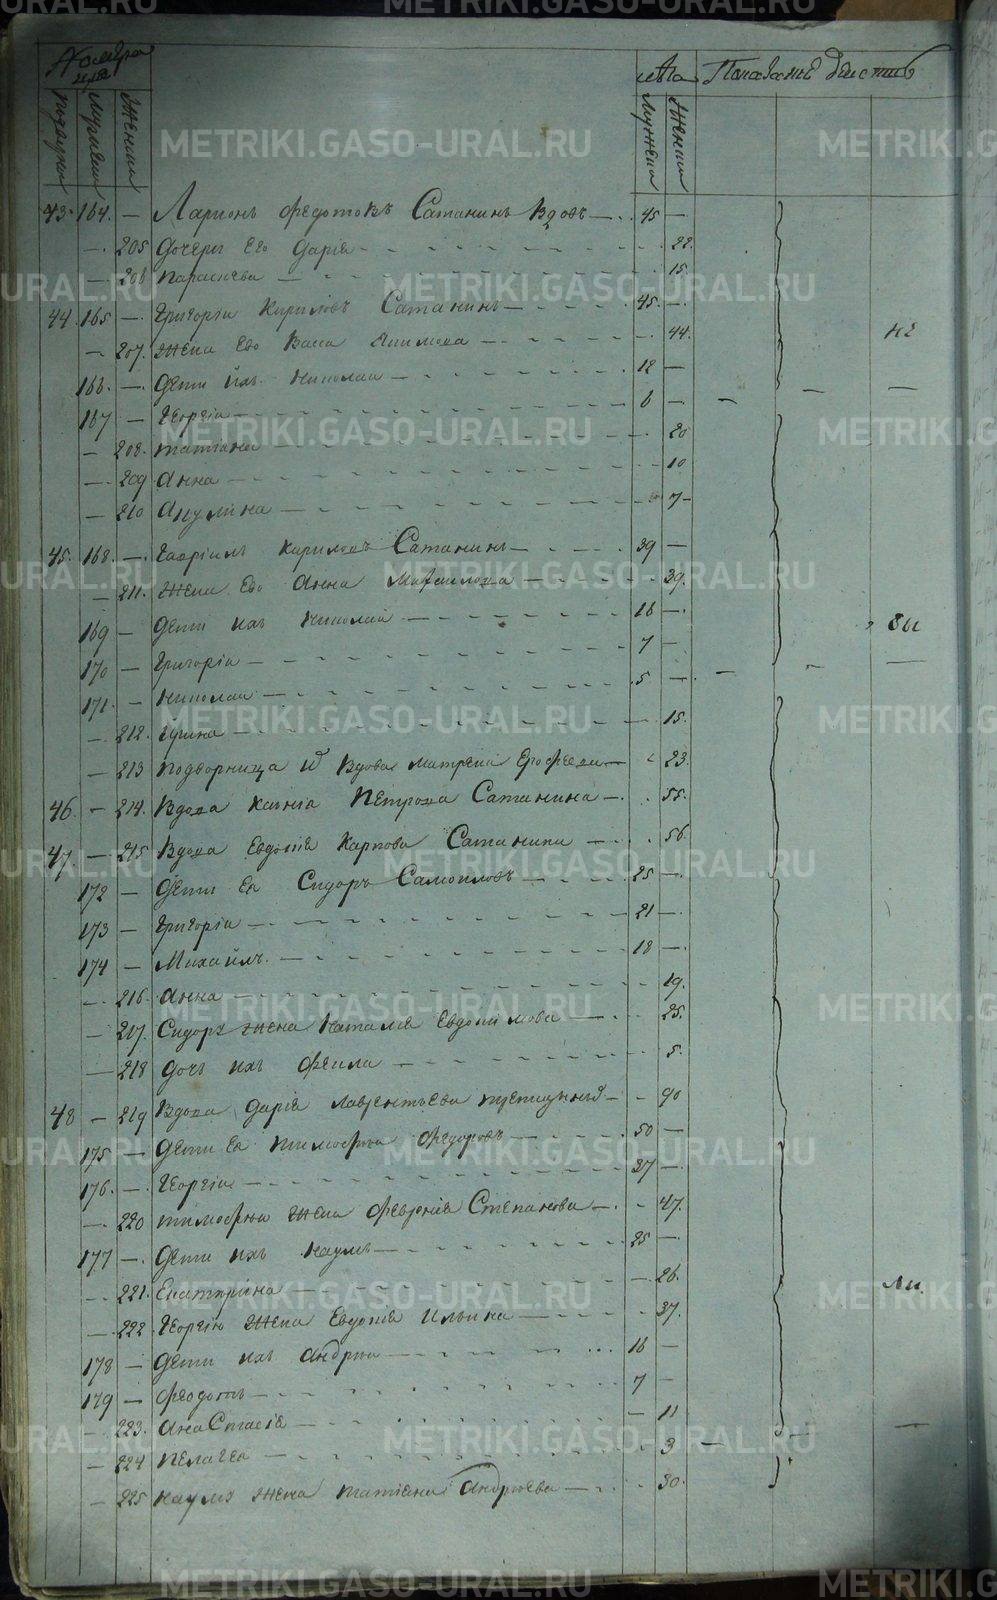 METRIKI.GASO-URAL.RU
Номера Лѣта
Мужеска Женска Мужеска Женска
43. 164. — Ларионъ Федотовъ Сатанинъ Вдовъ — 45 —
— 205 Дочери Его Дарiя — 22
— 206 Параскева — 15
44. 165 — Григорiй Кириловъ Сатанинъ — 45 —
— 207. Жена Его Васса — 44. не
166. — Дети ихъ Николай — 12 —
167 — Георгiй — 6 —
— 208. Татiана — 20
— 209 Анна — 10
— 210 Акулина — 7 —
45. 168. — Гаврiилъ Кириловъ Сатанинъ — 39 —
— 211. Жена Его Анна Михаилова — 39.
169 — Дети ихъ Николай — 16 — бы
170 — Григорiй — 7 —
171. — Николай — 5 —
— 212. — 15.
— 213 Вдова Матрена Ерофеева — 23.
46 — 214. Вдова Ксенiа Петрова Сатанина — 55.
47. — 215 Вдова Евдокiя Карпова Сатанина — 56
172 — Дети Ея Сидоръ Самойловъ — 25 —
173 — Григорiй — 21 —
174 — Михайлъ — 18 —
— 216. Анна — 19.
— 217. Сидора жена Наталiя Евдокимова — 25.
— 218 Дочь ихъ Фекла — 5.
48 — 219 Вдова Дарiя Лаврентьева — 90
175 — Дети Ея Тимофей Федоровъ — 50 —
176. — Георгiй — 37 —
— 220 Тимофея Жена Февронiя Степанова — 47.
177 — Дети ихъ Наумъ — 25 —
— 221. Екатерина — 26. ли
— 222. Георгiя Жена Евдокiя Ильина — 37.
178 — Дети ихъ Андрей — 16 —
179 — Феодотъ — 7 —
— 223. Анастасiя — 11
— 224 Пелагея — 3 —
— 225 Наума жена Татiана Андреева — 30.